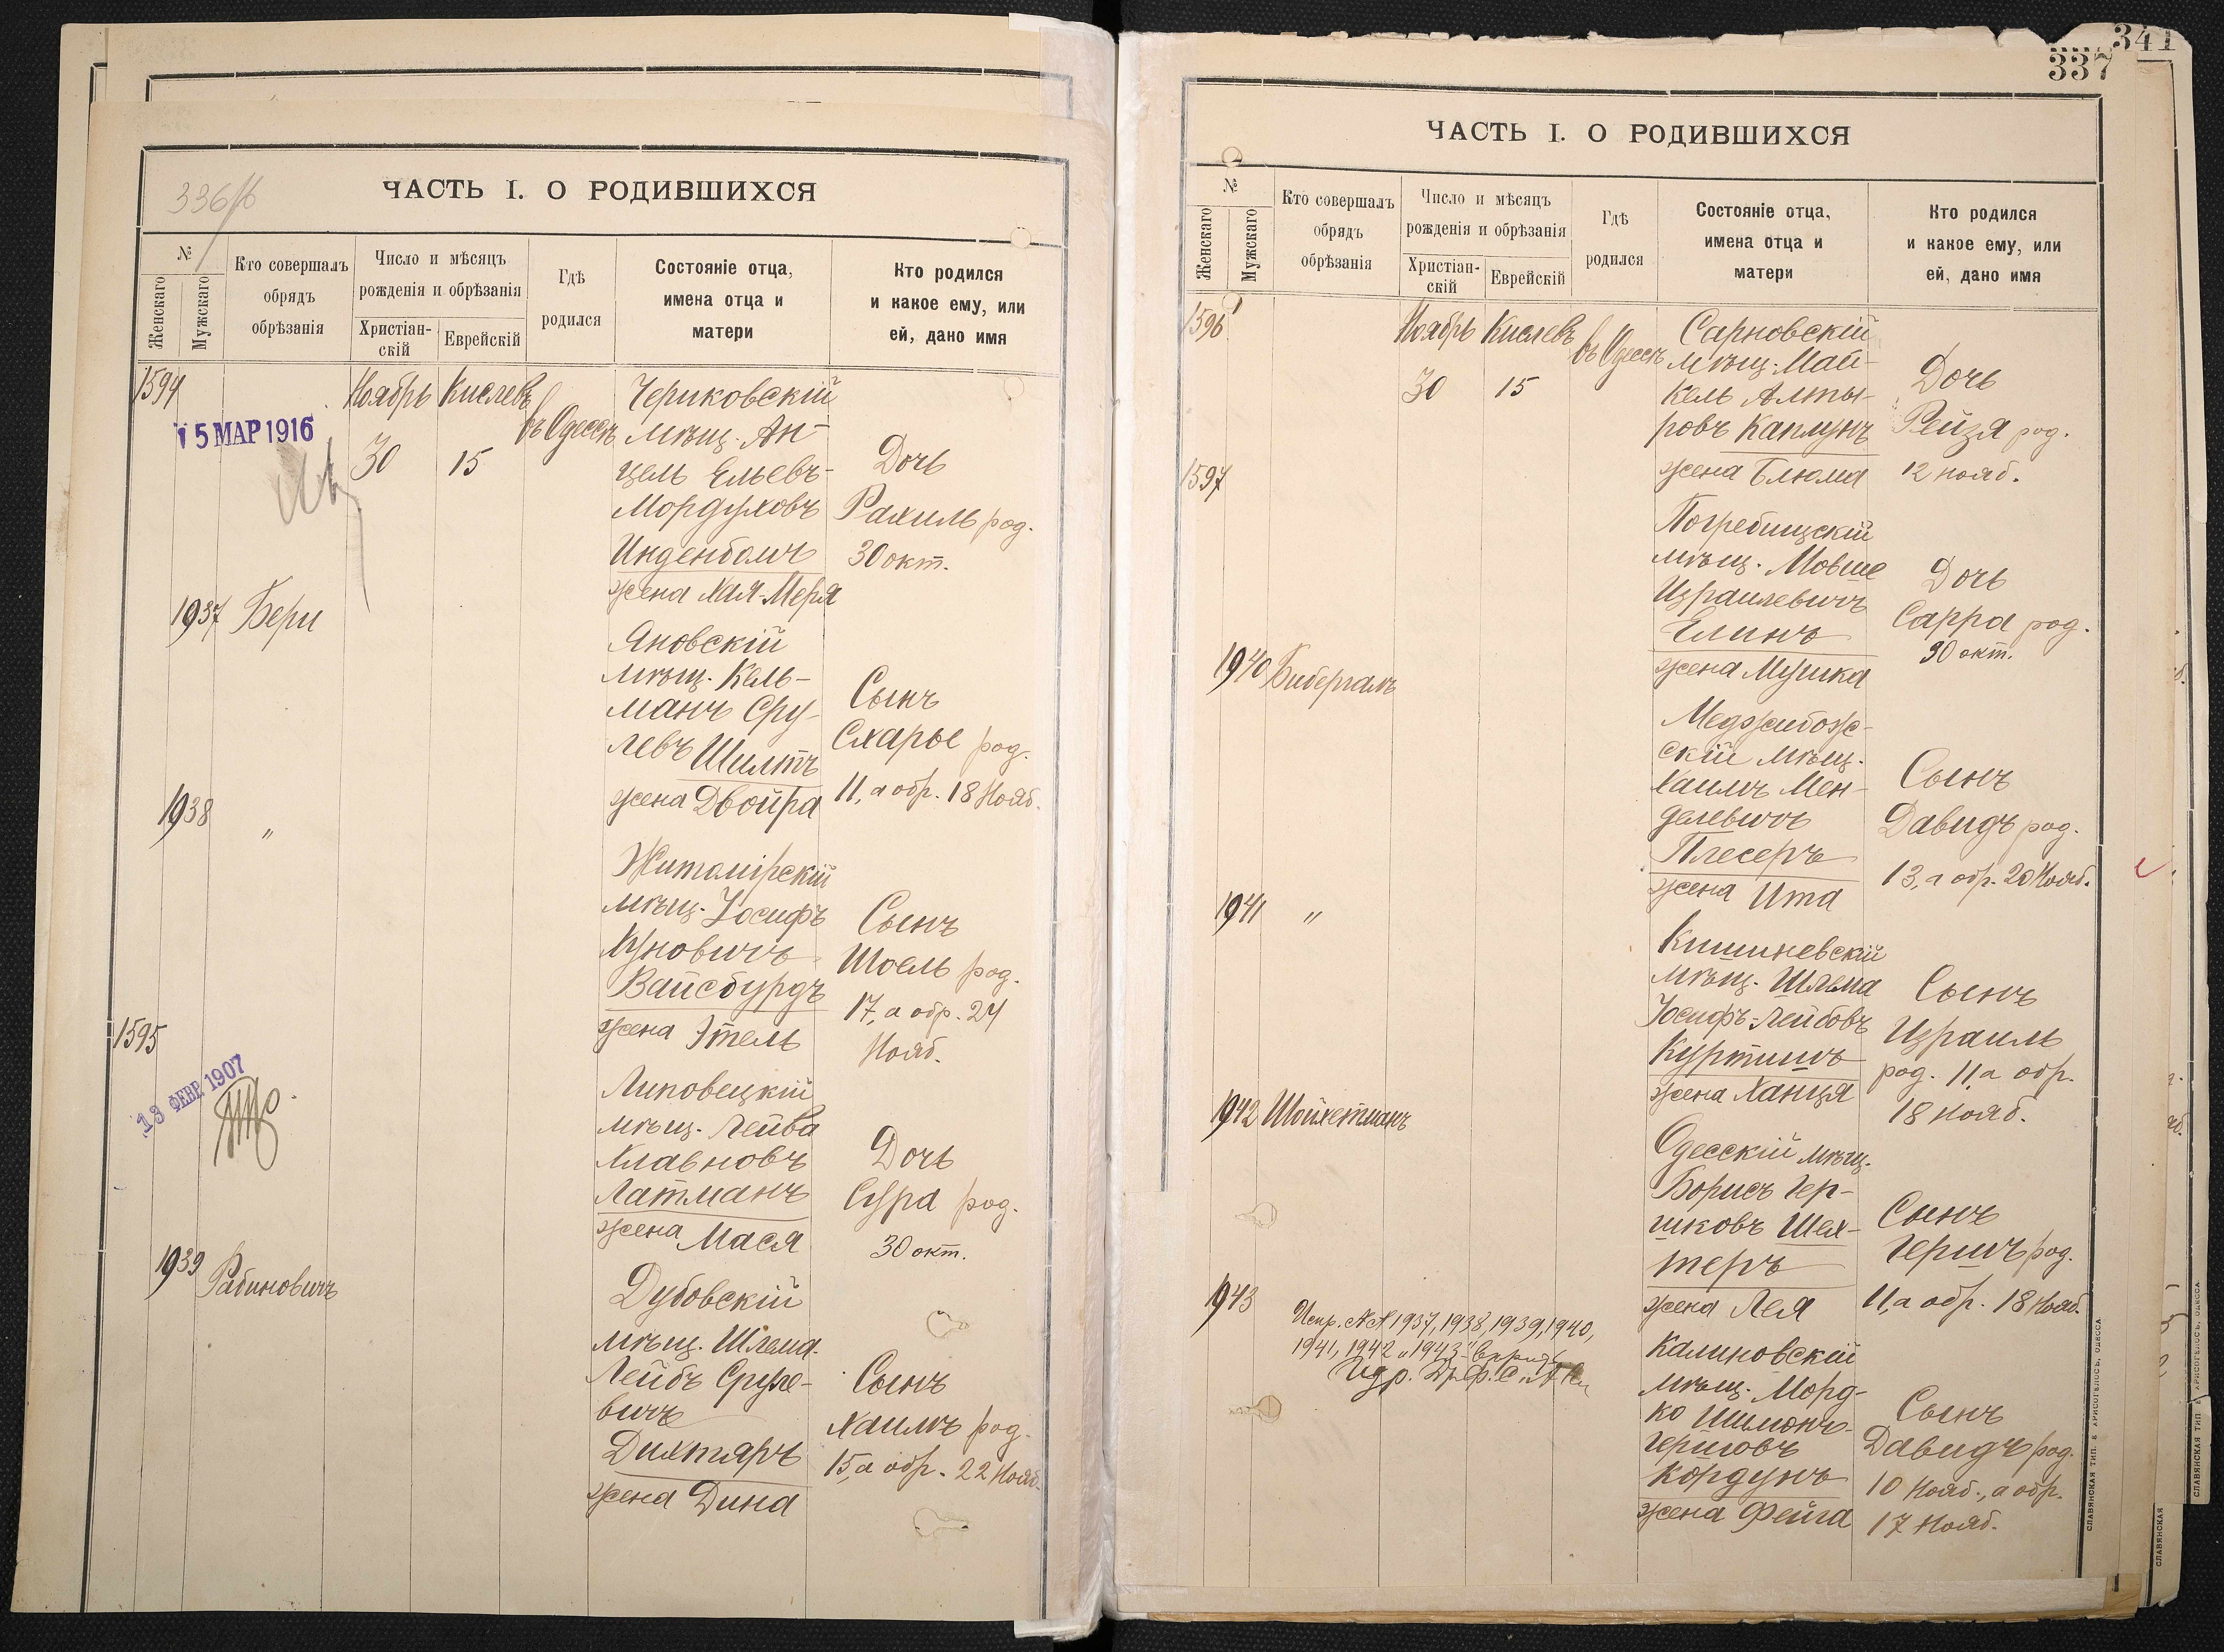 336 об
ЧАСТЬ I. О РОДИВШИХСЯ
№
Женскаго
Мужскаго
Кто совершалъ
обрядъ
обрѣзанія
Число и мѣсяцъ
рожденія и обрѣзанія
Христіан-
скій
Еврейскій
Гдѣ
родился
Состояніе отца,
имена отца и
матери
Кто родился
и какое ему, или
ей, дано имя
1594
15 МАР 1916
Ноябрь Кислевъ
30 15
въ Одессѣ
Чериковскій
мѣщ. Ан-
цель Ельевъ-
Мордуховъ
Инденбомъ
жена Хая-Меря
Дочь
Рахиль род.
30 окт.
1937 Бери
Яновскій
мѣщ. Кель-
манъ Сру-
левъ Шилтъ
жена Двойра
Сынъ
Схарье род.
11, а обр. 18 Нояб.
1938 "
Житомірскій
мѣщ. Іосифъ
Куновичъ
Вайсбурдъ
жена Этель
Сынъ
Шоель род.
17, а обр. 24
Нояб.
1595
13 ФЕВР. 1907
Липовецкій
мѣщ. Лейва
Клавновъ
Латманъ
жена Мася
Дочь
Сура род.
30 окт.
1939 Рабиновичъ
Дубовскій
мѣщ. Шлема-
Лейбъ Сруле-
вичъ
Дихтяръ
жена Дина
Сынъ
Хаимъ род.
15, а обр. 22 Нояб.
341
337
ЧАСТЬ I. О РОДИВШИХСЯ
№
Женскаго
Мужскаго
Кто совершалъ
обрядъ
обрѣзанія
Число и мѣсяцъ
рожденія и обрѣзанія
Христіан-
скій
Еврейскій
Гдѣ
родился
Состояніе отца,
имена отца и
матери
Кто родился
и какое ему, или
ей, дано имя
1596
Ноябрь Кислевъ
30 15
въ Одессѣ
Сарновскій
мѣщ. Май-
кель Алты-
ровъ Каплунъ
жена Блюма
Дочь
Рейзя род.
12 нояб.
1597
Погребищскій
мѣщ. Мовше
Израилевичъ
Елинъ
жена Мушка
Дочь
Сарра род.
30 окт.
1940 Бибергалъ
Меджибож-
скій мѣщ.
Хаимъ Мен-
делевичъ
Плесеръ
жена Ита
Сынъ
Давидъ род.
13, а обр. 20 Нояб.
1941 "
Кишиневскій
мѣщ. Шлема
Іосифъ-Лейбовъ
Куртишъ
жена Ханця
Сынъ
Израиль
род. 11, а обр.
18 нояб.
1942 Шойхетманъ
Одесскій мѣщ.
Борисъ Гер-
шковъ Шех-
теръ
жена Лея
Сынъ
Гершъ род.
11, а обр. 18 Нояб.
1943
Испр. №№ 1937, 1938, 1939, 1940,
1941, 1942 и 1943
Калиновскій
мѣщ. Морд-
ко Шимонъ-
Гершовъ
Кордунъ
жена Фейга
Сынъ
Давидъ род.
10 Нояб., а обр.
17 Нояб.
СЛАВЯНСКАЯ ТИП. Е. ХРИСОГЕЛОСЪ, ОДЕССА
СЛАВЯНСКАЯ
СЛАВЯНСКАЯ ТИП. Е. ХРИСОГЕЛОСЪ, ОДЕССА